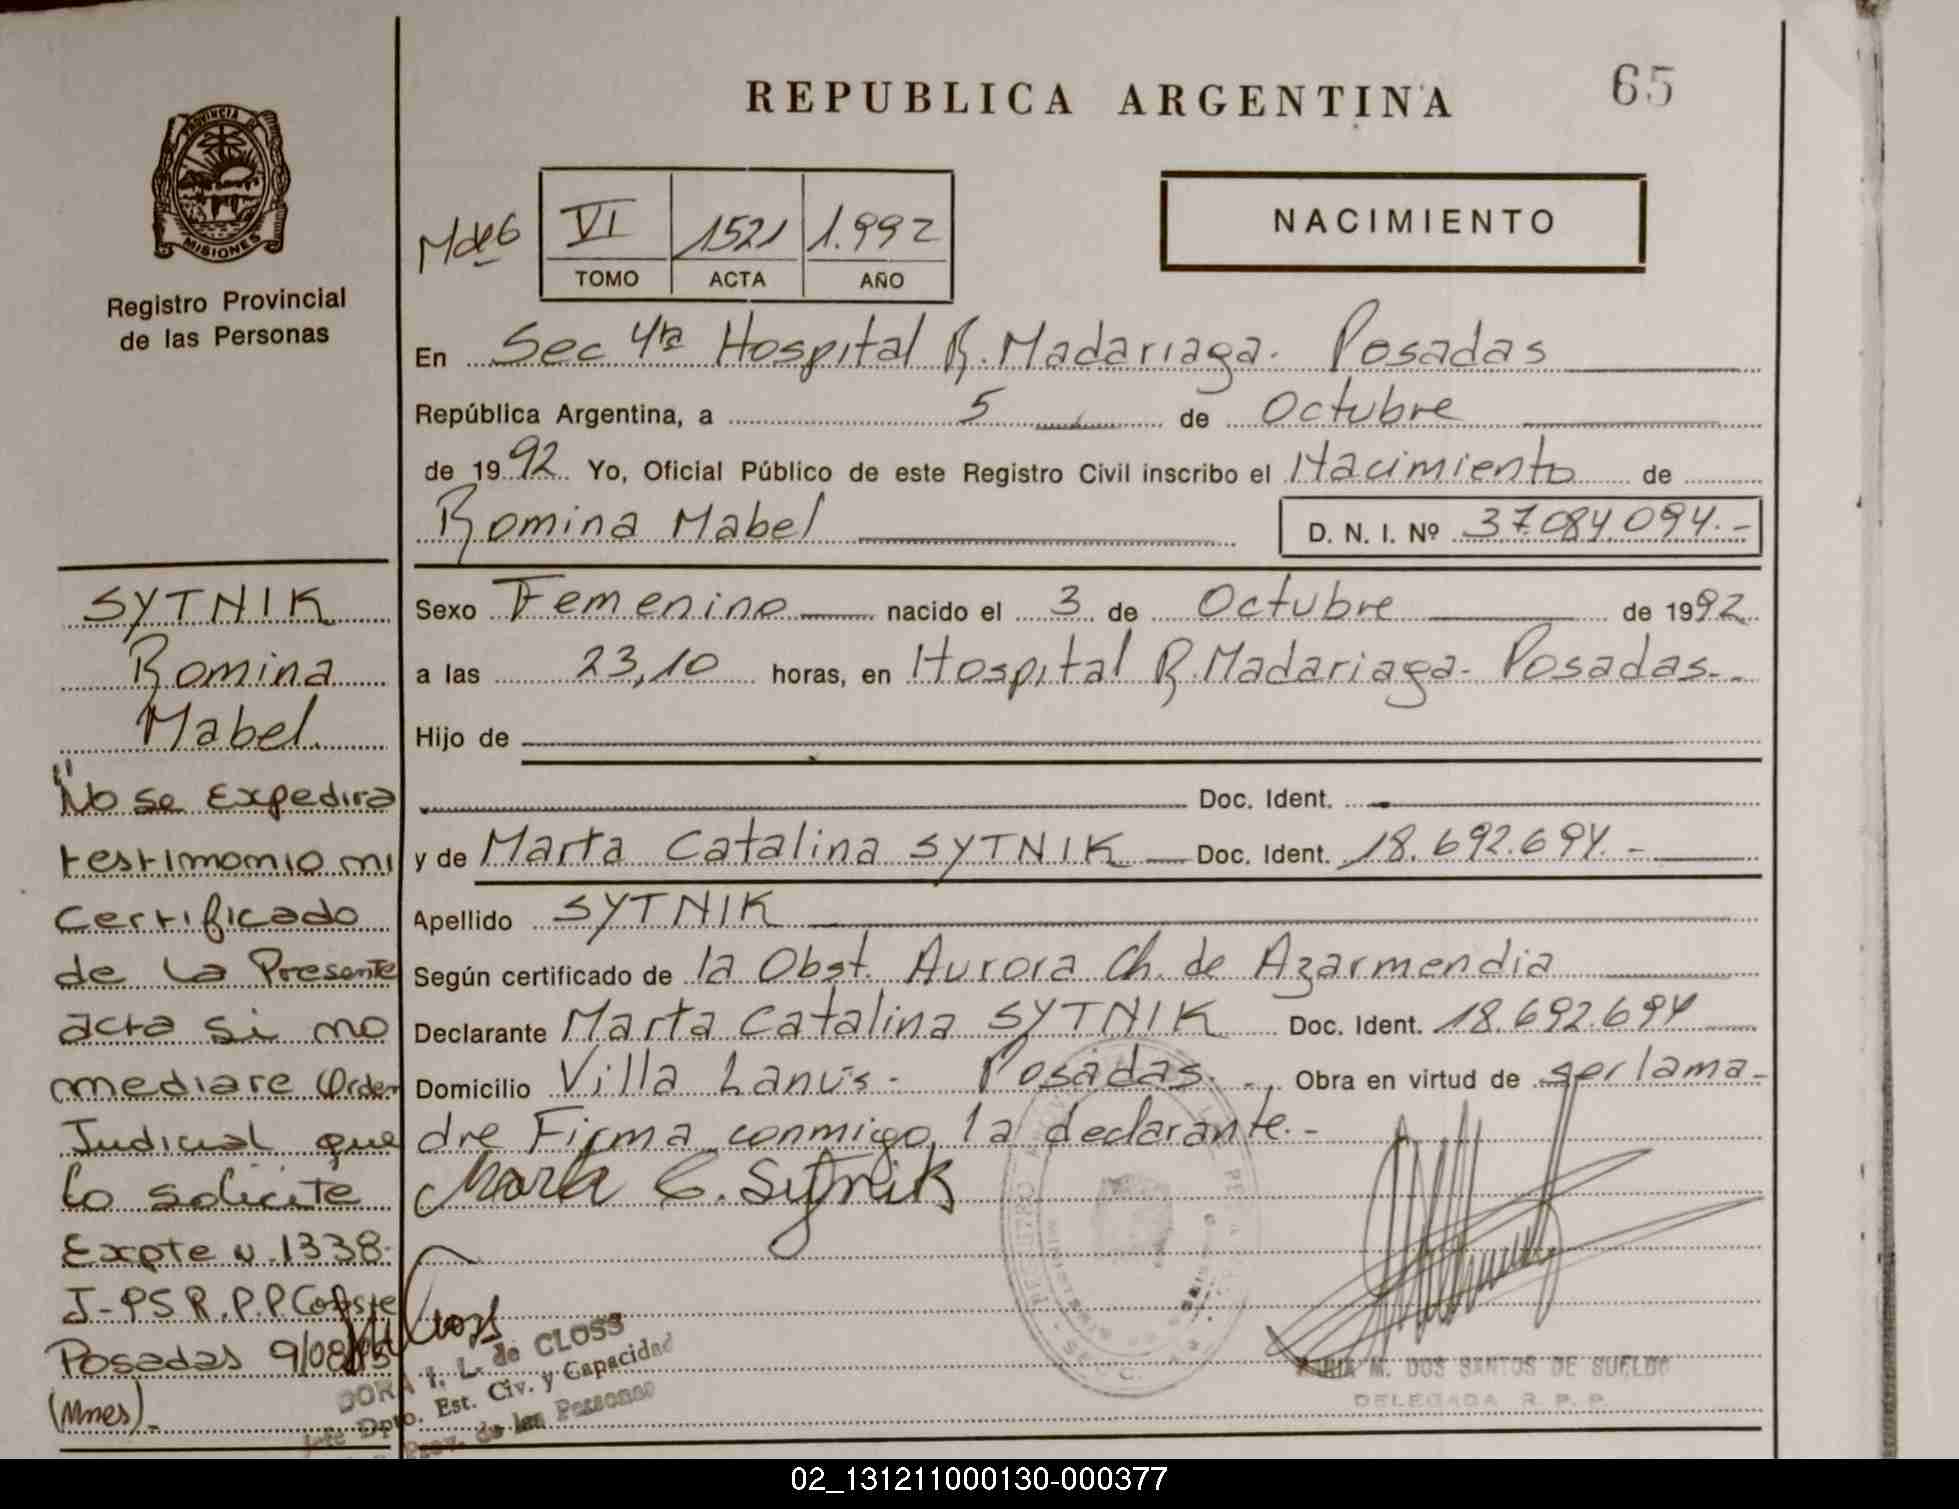 REPUBLICA ARGENTINA
65
PROVINCIA DE
MISIONES
Registro Provincial
de las Personas
Mde6
VI 1521 1.992
TOMO ACTA AÑO
NACIMIENTO
En Sec 4ta Hospital R. Madariaga. Posadas
República Argentina, a 5 de Octubre
de 1992 Yo, Oficial Público de este Registro Civil inscribo el Nacimiento de
Romina Mabel D. N. I. Nº 37.084.094.-
Sexo Femenino nacido el 3 de Octubre de 1992
a las 23,10 horas, en Hospital R. Madariaga- Posadas.-
Hijo de
Doc. Ident.
y de Marta Catalina SYTNIK Doc. Ident. 18.692.694.-
Apellido SYTNIK
Según certificado de la Obst. Aurora Ch. de Azarmendia
Declarante Marta Catalina SYTNIK Doc. Ident. 18.692.694
Domicilio Villa Lanús- Posadas.-, Obra en virtud de ser la ma-
dre Firma conmigo, la declarante.-
Marta C. Sytnik
SYTNIK
Romina
Mabel.
"No se Expedira
testimonio ni
Certificado
de la Presente
acta si no
mediare Orden
Judicial que
lo solicite
Expte N.1338-
J-PSR.P.P.
Posadas 9/08/
(Mnes).-
DORA I. L. de CLOSS
Jefe Dpto. Est. Civ. y Capacidad
Prov. de las Personas
MARIA M. DOS SANTOS DE SUELDO
DELEGADA R. P. P.
02_131211000130-000377